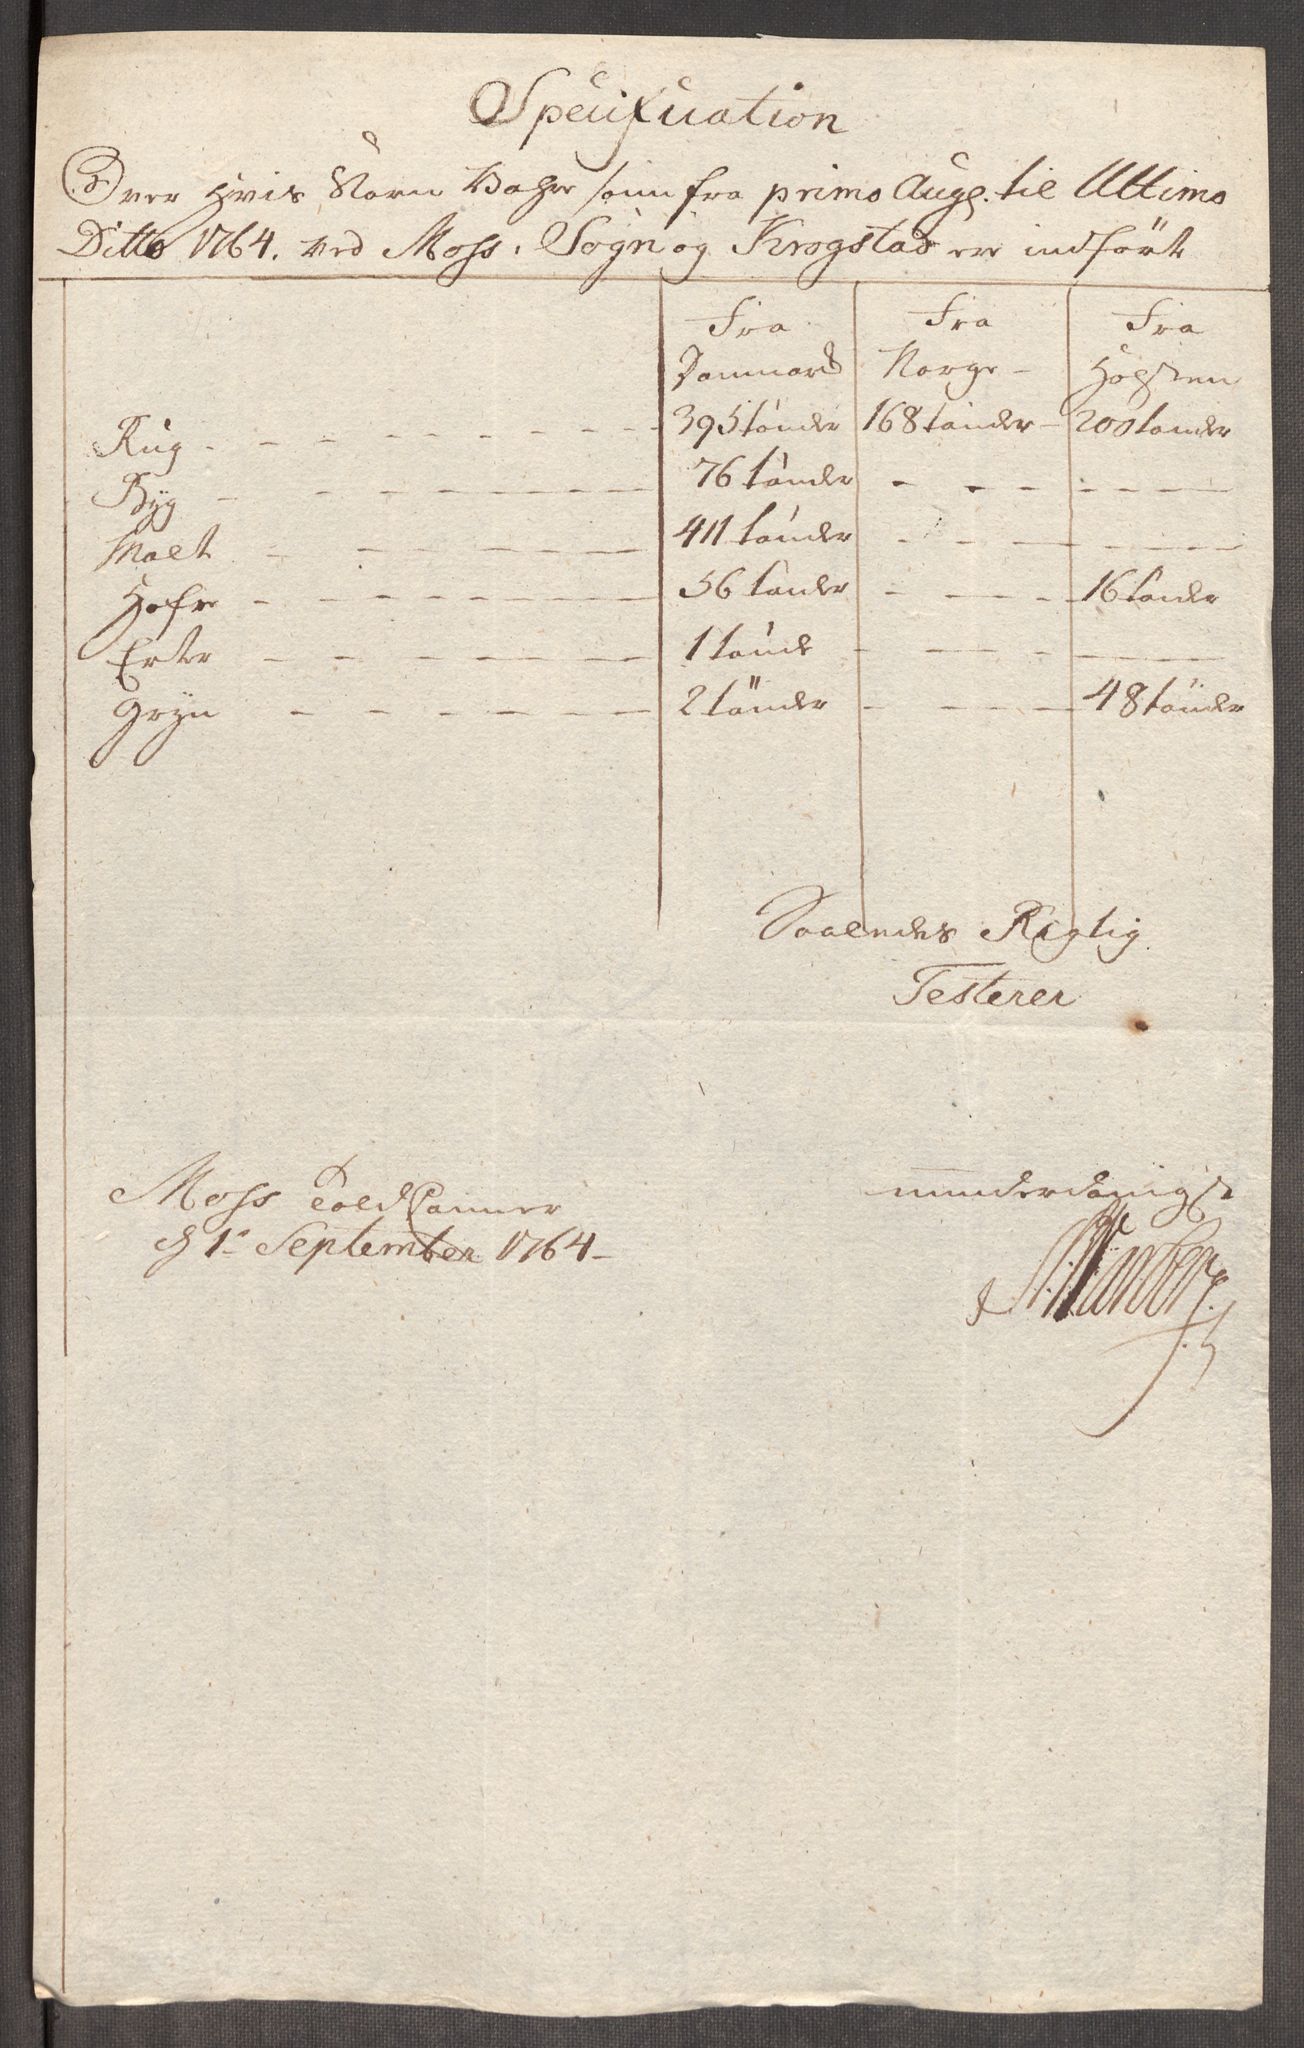 Specification
Over Hvis Korn Vahre som fra primo Aug. til Ultimo
Ditto 1764. ved Moss, Sogn og Krogstad ere indført
Fra Fra Fra
Danmark Norge - Holsten
Rug - 395 tønder 168 tønder - 200 tønder
Byg - 76 tønder - - -
Malt - 411 tønder - - -
Hafre - 56 tønder - - - 16 tønder
Erter - 1 tønde - - -
Gryn - 2 tønder - - - 48 tønder
Saaledes Rigtig
Testerer
Moss Told Cammer underdanigst
d 1. September 1764 -